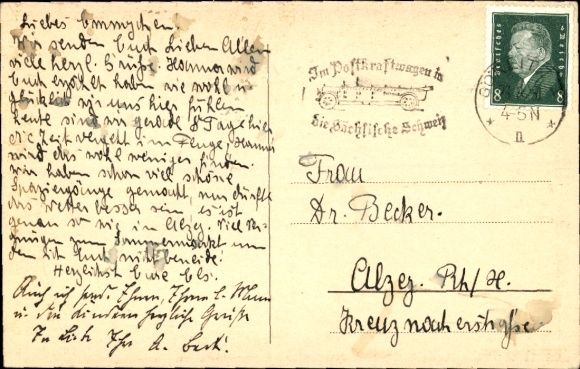 Liebes Emmychen.
Wir senden Euch Lieben Allen
viele herzl. Grüße. Hanna wird
Euch erzählt haben wie wohl u.
glücklich wir uns hier fühlen
heute sind wir gerade 8 Tage hier
die Zeit vergeht im Fluge, Hanni
wird das wohl weniger finden.
Wir haben schon viel schöne
Spaziergänge gemacht, nur dürfte
das Wetter besser sein, es ist
genau so wie in Alzey. Viel Ver-
gnügen zum
den ich Euch nicht beneide.
Herzlichst Eure Els.
Auch ich send. Ihnen, Ihrem l. Mann
u. den Kindern herzliche Grüße
In Liebe Ihr A.
Im Postkraftwagen in
die Sächsische Schweiz
Deutsches Reich
8 8
4-5N
* n *
Frau
Dr. Becker.
Alzey. Rh/H.
Kreuznacherstraße